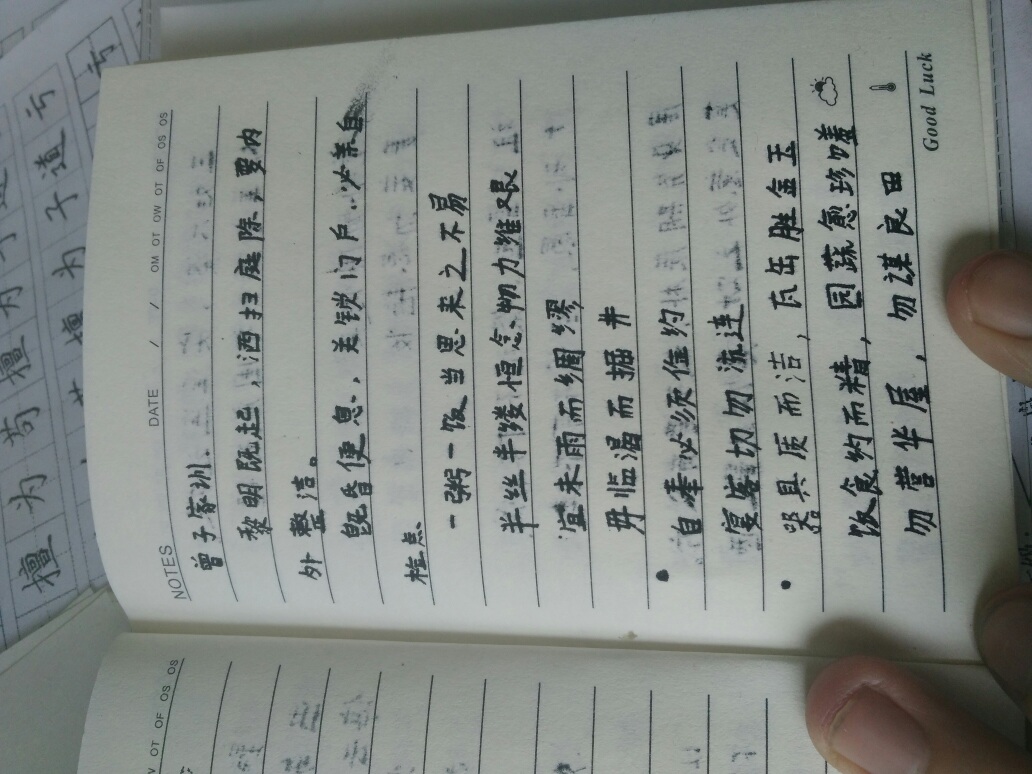 NOTES DATE / / OM OT OW OT OF OS OS
曾子家训.
黎明既起,洒扫庭除,要内
外整洁。
既昏便息、关锁门户..必亲自
检点
一粥一饭当思来之不易
半丝半缕恒念物力维艰
宜未雨而绸缪
毋临渴而掘井
• 自奉必须俭约
宴客切勿流连
• 器具质而洁,瓦缶胜金玉
饮食约而精,园蔬愈珍馐
勿营华屋,勿谋良田
Good Luck
檀为苟檀为子道亏
檀为子道亏
亏
OT OF OS OS